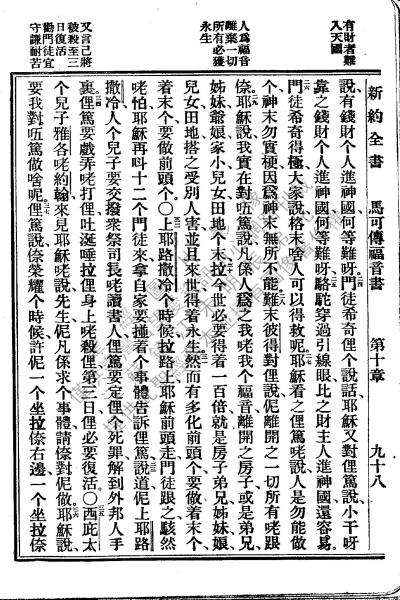 新約全書　馬可傳福音書　第十章　九十八
有財者難入天國
說有錢財个人進神國何等難呀門徒希奇俚个說話耶穌又對俚篤說小干呀
靠之錢財个人進神國何等難呀駱駝穿過引線眼比之財主人進神國還容易
門徒希奇得極大家說格末啥人可以得救呢耶穌看之俚篤咾說人是勿能做
个神末勿實梗因爲神末無所不能彼得對俚說伲離開之一切所有咾跟
人爲福音離棄一切所有必獲永生
倷耶穌說我實在對唔篤說凡係人爲之我咾我个福音離開之房子或是弟兄
姊妹爺娘家小兒女田地个末拉今世必要得着一百倍就是房子弟兄姊妹娘
兒女田地搭之受別人害並且來世得着永生然而有多化前頭个要做着末个
着末个要做前頭个○上耶路撒冷个時候拉路上耶穌前頭走門徒跟之駭然
又言己將被殺至三日復活
咾怕耶穌再呌十二个門徒來拿自家要撞着个事體告訴俚篤說道伲上耶路
撒冷人个兒子要交撥衆祭司長咾讀書人俚篤要定俚个死罪解到外邦人手
裏俚篤要戲弄咾打俚吐涎唾拉俚身上咾殺俚第三日俚必要復活○西庇太
勸門徒宜守謙耐苦
个兒子雅各咾約翰來見耶穌咾說先生伲凡係求个事體請倷對伲做耶穌說
要我對唔篤做啥呢俚篤說倷榮耀个時候許伲一个坐拉倷右邊一个坐拉倷